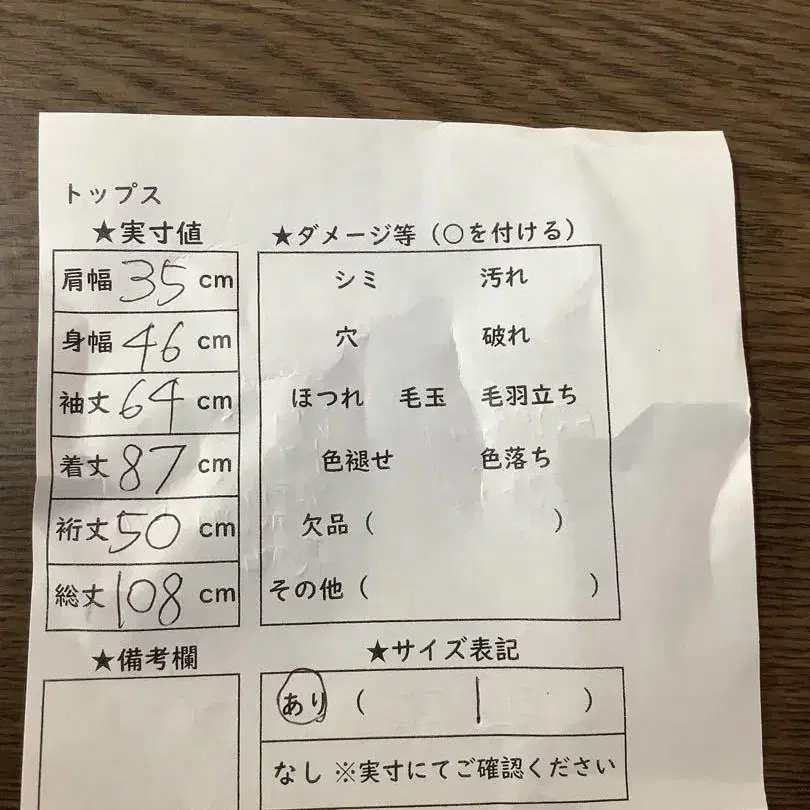 トップス
★実寸値
肩幅 35 cm
身幅 46 cm
袖丈 64 cm
着丈 87 cm
裄丈 50 cm
総丈 108 cm
★備考欄
★ダメージ等（○を付ける）
シミ 汚れ
穴 破れ
ほつれ 毛玉 毛羽立ち
色褪せ 色落ち
欠品（ ）
その他（ ）
★サイズ表記
あり（ 1 ）
なし ※実寸にてご確認ください